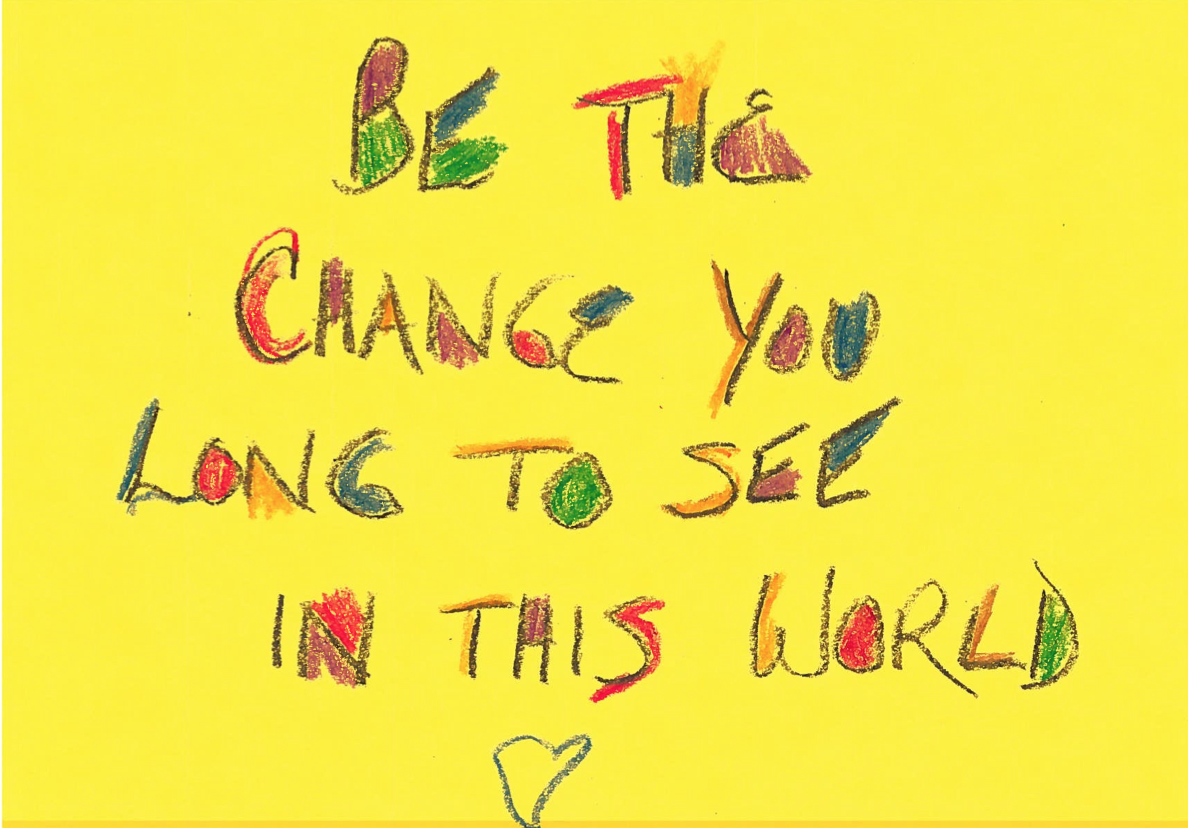 BE THE
CHANGE YOU
LONG TO SEE
IN THIS WORLD